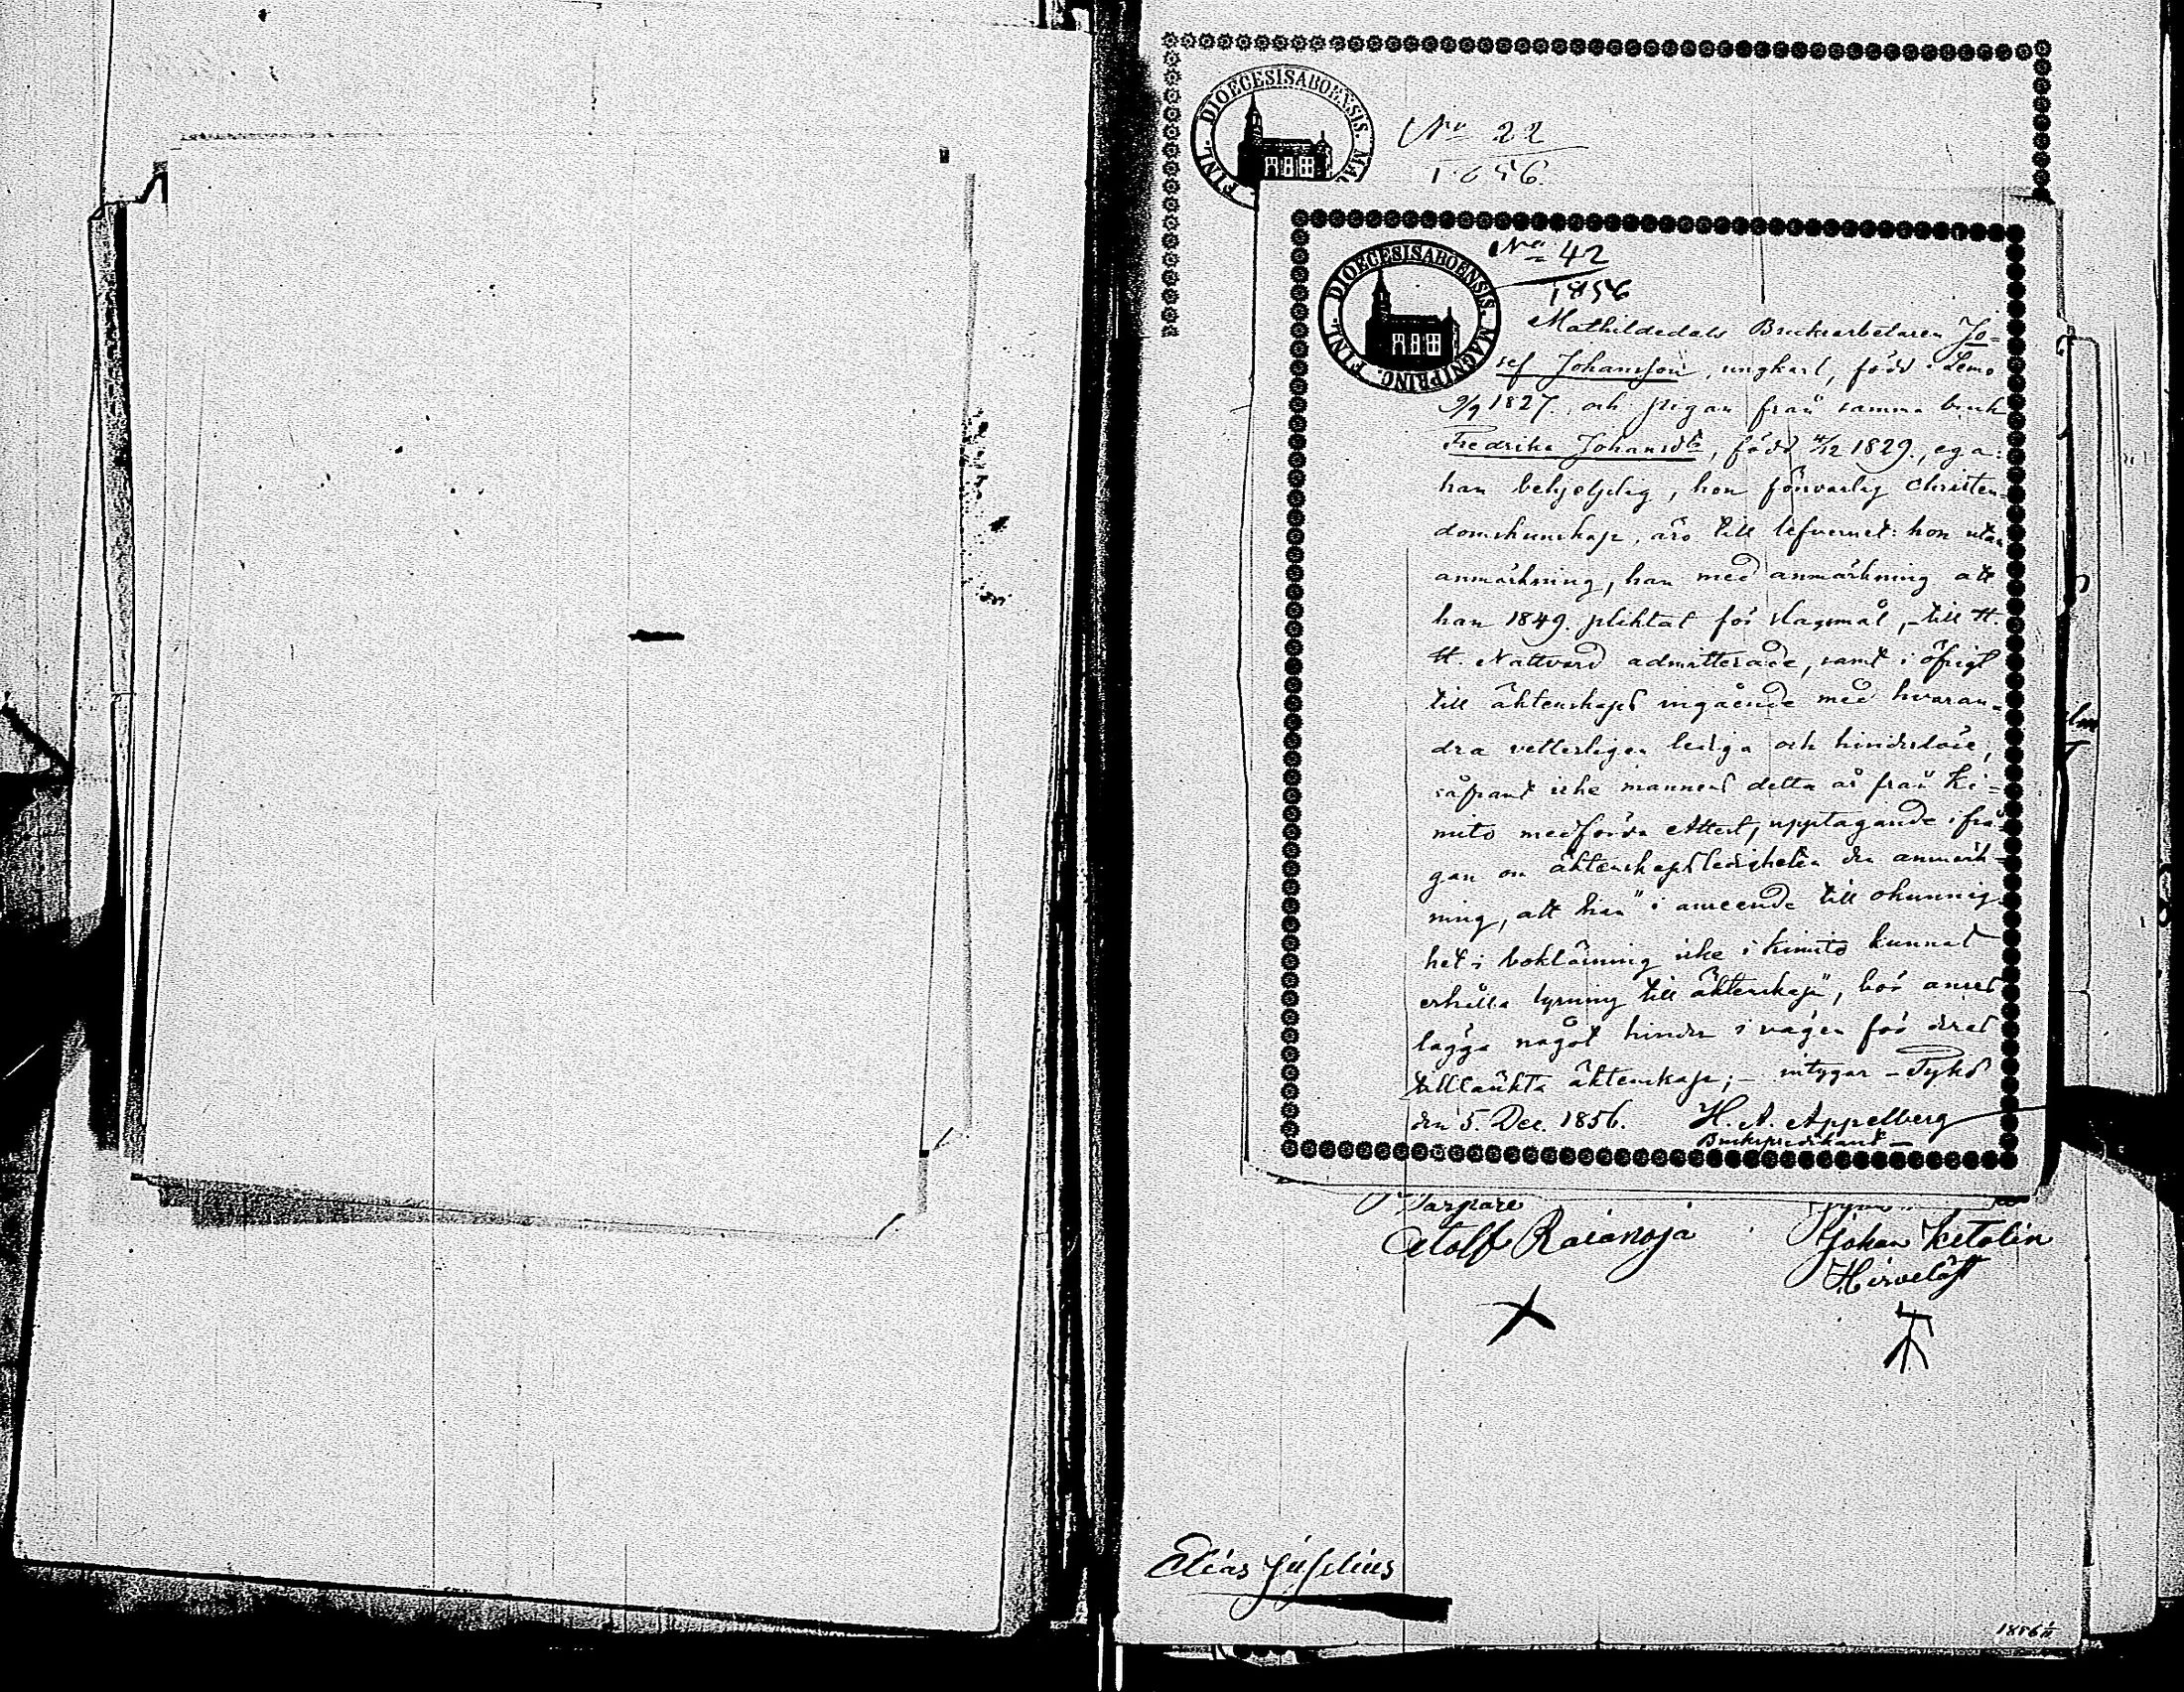 DIOECESISABOENSIS. MAG
FINL.
No 22
1856.
DIOECESISABOENSIS. MAGNIPRINC. FINL.
No 42
1856
Mathildedals Bruksarbetaren Jo-
sef Johansson, ungkarl, född i Lemo
9/9 1827, och pigan från samma bruk
Fredrika Johansdr, född 4/12 1829., ega:
han behjelplig, hon försvarlig christen-
domskunskap, äro till lefvernet: hon utan
anmärkning, han med anmärkning att
han 1849. pliktat för slagsmål, - till H.
H. Nattvard admitterade, samt i öfrigt
till äktenskaps ingående med hvaran-
dra vetterligen lediga och hinderslöse,
såframt icke mannens detta år från Ki-
mito medförda Attest, upptagande i frå-
gan om äktenskapsledigheten den anmärk-
ning, att han "i anseende till okunnig-
het i boklärning icke i Kimito kunnat
erhålla lysning till äktenskap", bör anses
lägga något hinder i vägen för deras
tilltänkta äktenskap; - intygar - Tykö
den 5. Dec. 1856. H. A. Appelberg
Brukspredikant -
Torpare
Adolf Raianoja
Johan Ketolin
Hirvelä
Elias Juselius
1856